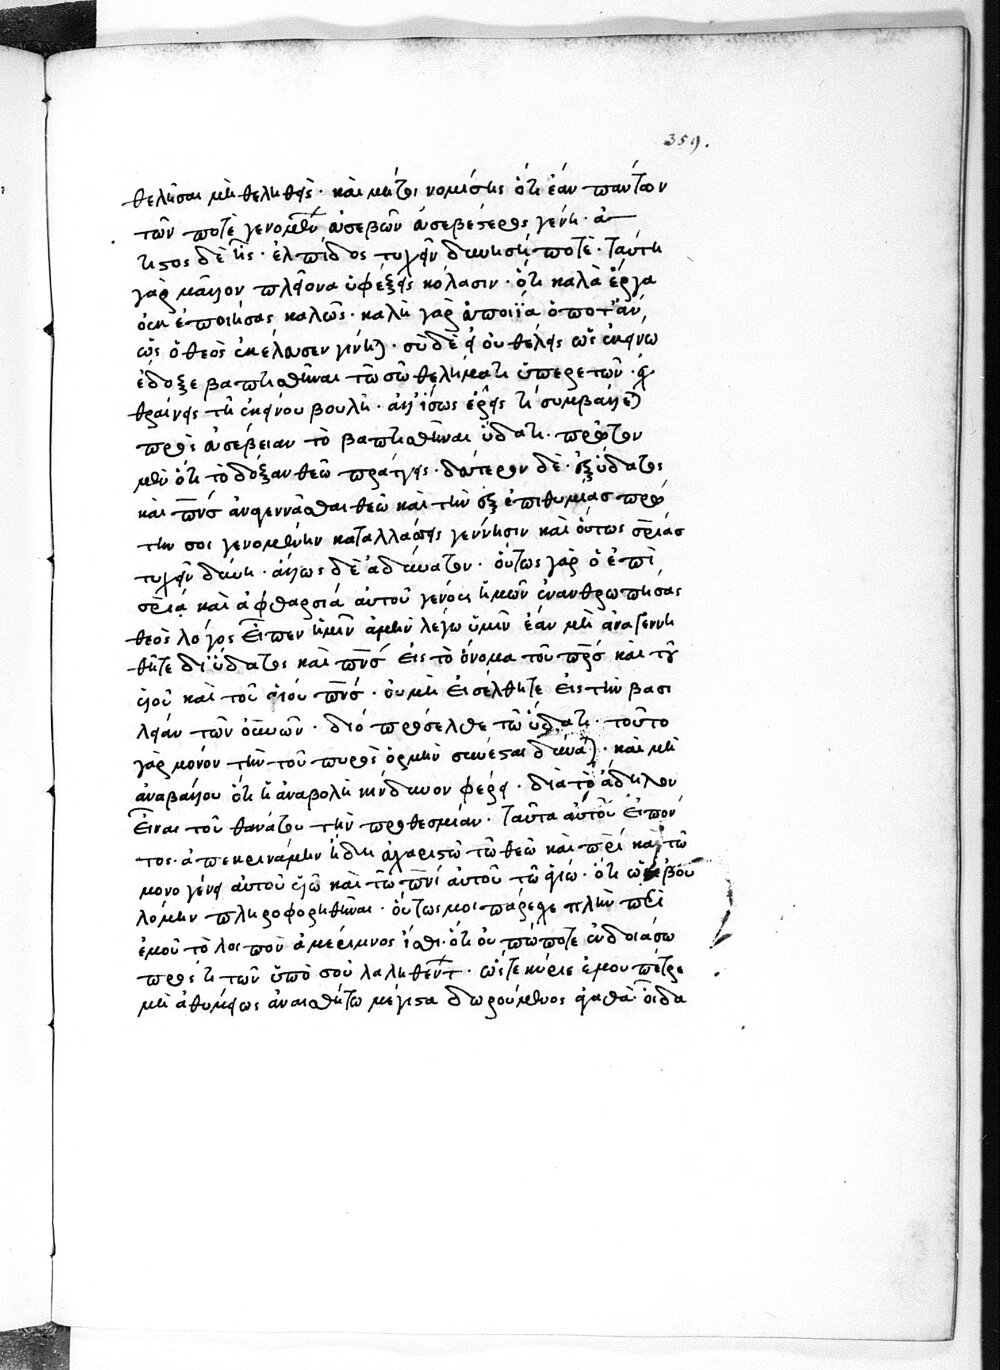 359.
θελῆσαι μὴ θεληθῇς· καὶ μήτοι νομίσῃς ὅτι ἐὰν πάντων
τῶν ποτὲ γενομένων ἀσεβῶν ἀσεβέστερος γένῃ· ἀ
τιστος δὲ ᾖς· ἐλπίδος τυχεῖν δυνήσῃ ποτέ· ταύτῃ
γὰρ μᾶλλον πλείονα ὑφέξεις κόλασιν· ὅτι καλὰ ἔργα
οὐκ ἐποίησας καλῶς· καλὴ γὰρ εὐποιΐα ὁπόταν,
ὡς ὁ θεὸς ἐκέλευσεν γίνηται· σὺ δὲ εἰ οὐ θέλεις ὡς ἐκείνῳ
ἔδοξε βαπτισθῆναι τῷ σῷ θελήματι ὑπηρετῶν· ἐ
θραίνεις τῇ ἐκείνου βουλῇ· ἀλλ' ἴσως ἐρεῖς τί συμβάλλεται
πρὸς εὐσέβειαν τὸ βαπτισθῆναι ὕδατι· πρῶτον
μὲν ὅτι τὸ δόξαν θεῷ πράττεις· δεύτερον δὲ· ἐξ ὕδατος
καὶ πνς ἀναγεννᾶσθαι θεῷ καὶ τὴν ἐξ ἐπιθυμίας πρώ
την σοι γενομένην καταλλάσσεις γέννησιν καὶ οὕτως σρίας
τυχεῖν δύνῃ· ἄλλως δὲ ἀδύνατον· οὕτως γὰρ ὁ ἐπὶ
σρία καὶ ἀφθαρσία αὐτοῦ γένους ἡμῶν ἐνανθρωπήσας
θεὸς λόγος εἶπεν ἡμῖν ἀμὴν λέγω ὑμῖν ἐὰν μὴ ἀναγεννη
θῆτε δι' ὕδατος καὶ πνς εἰς τὸ ὄνομα τοῦ πρς καὶ τοῦ
υἱοῦ καὶ τοῦ ἁγίου πνς· οὐ μὴ εἰσέλθητε εἰς τὴν βασι
λείαν τῶν οὐνῶν· διὸ πρόσελθε τῷ ὕδατι· τοῦτο
γὰρ μόνον τὴν τοῦ πυρὸς ὁρμὴν σβέσαι δύναται· καὶ μὴ
ἀναβάλλου ὅτι ἡ ἀναβολὴ κίνδυνον φέρει· διὰ τὸ ἄδηλον
εἶναι τοῦ θανάτου τὴν προθεσμίαν· ταῦτα αὐτοῦ εἰπόν
τος· ἀπεκρινάμην ἤδη εὐχαριστῶ τῷ θεῷ καὶ πρί καὶ τῷ
μονογενεῖ αὐτοῦ υἱῷ καὶ τῷ πνί αὐτοῦ τῷ ἁγίῳ· ὅτι ὡς ἐβου
λόμην πληροφορηθῆναι· οὕτως μοι παρέσχε πλὴν περὶ
ἐμοῦ τὸ λοιπὸν ἀμέριμνος ἴσθι· ὅτι οὐ πώποτε ἐνδοιάσω
πρός τι τῶν ὑπὸ σοῦ λαληθέντων· ὥστε κύριέ μου πέτρε
μὴ ἀθυμήσῃς ἀναισθήτῳ μέγιστα δωρούμενος ἀγαθά· οἶδα